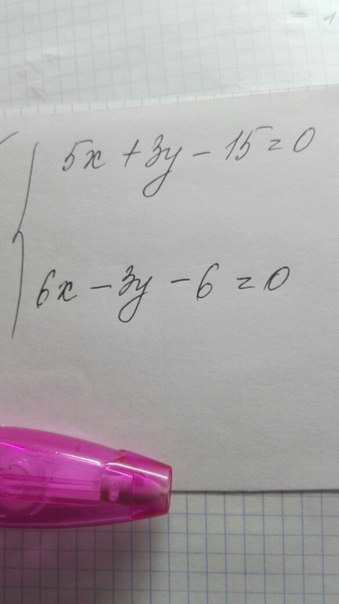 5x + 3y - 15 = 0
6x - 3y - 6 = 0